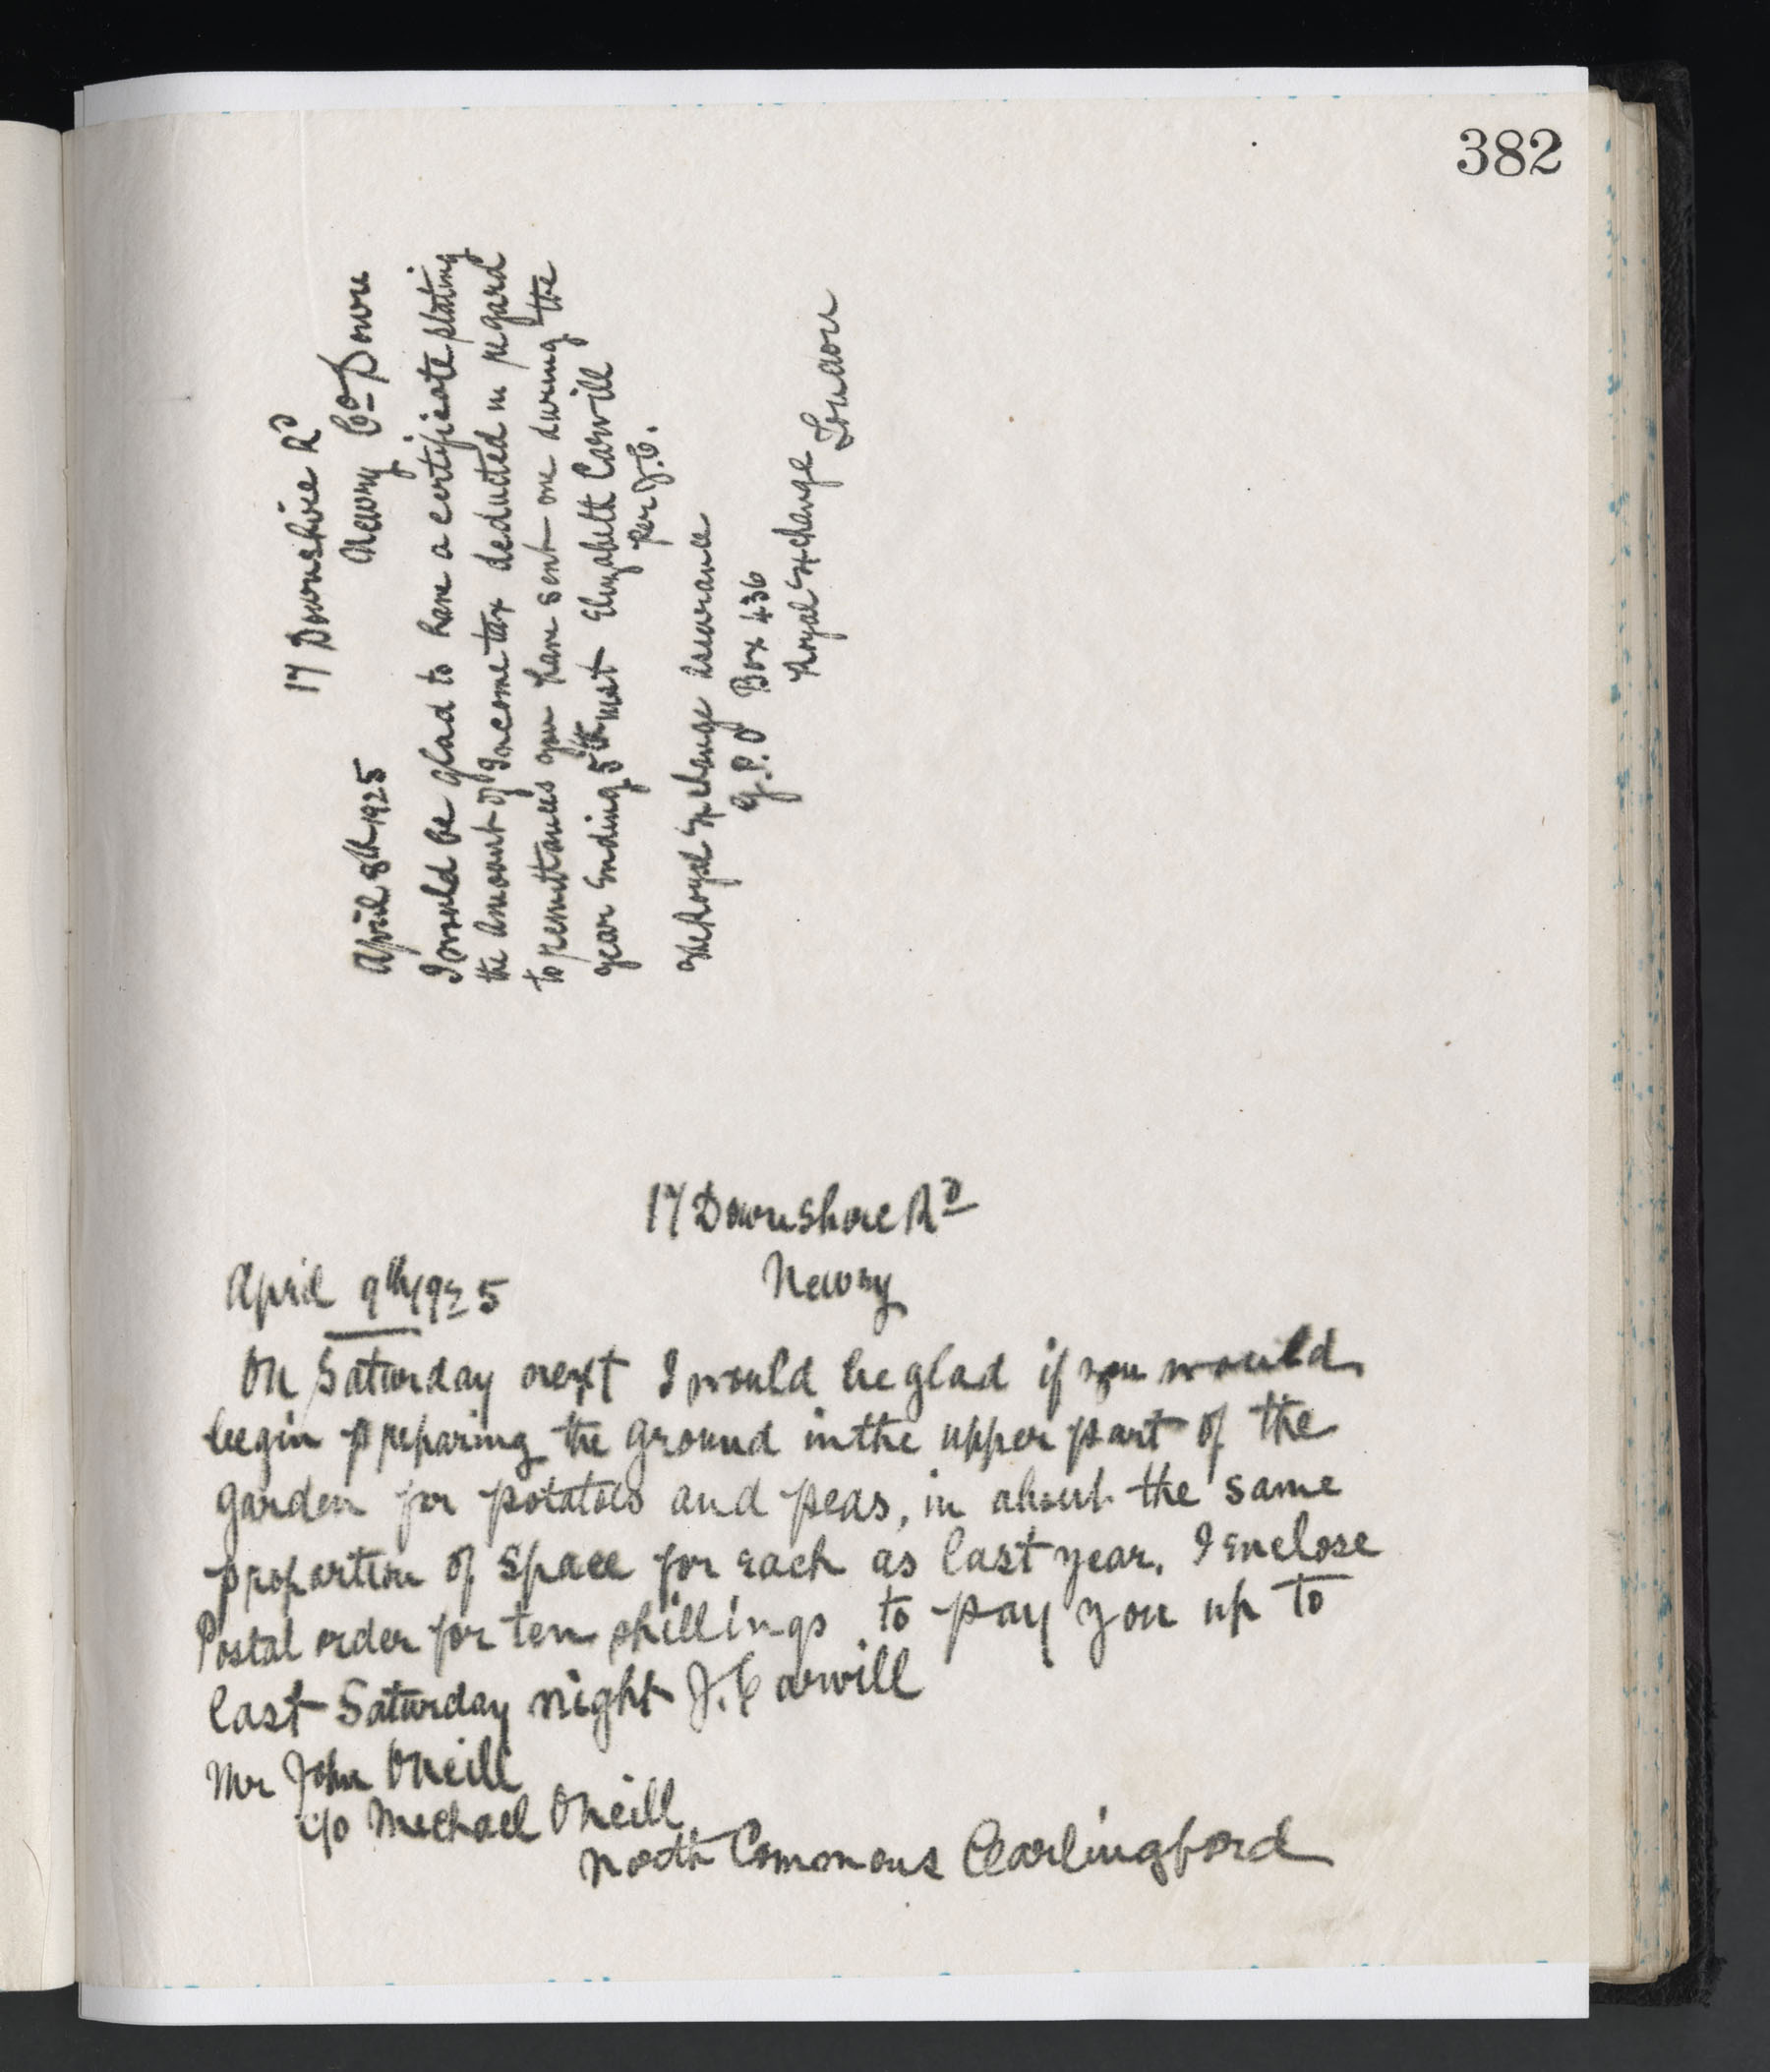 382
17 Downshire Rd
Newry Co Down
April 8th 1925
I would be glad to have a certificate stating
the amount of Income tax deducted in regard
to remittances you have sent me during the
year Ending 5th inst Elizabeth Carvill
per J.C.
The Royal Exchange Assurance
G.P.O Box 436
Royal Exchange London
17 Downshire Rd
Newry
April 9th 1925
On Saturday next I would be glad if you would
begin preparing the ground in the upper part of the
garden for potatoes and peas, in about the same
proportion of space for each as last year. I Enclose
Postal order for ten shillings to pay you up to
last Saturday night J. Carvill
Mr John ONeill
c/o Michael ONeill
North Commons Carlingford